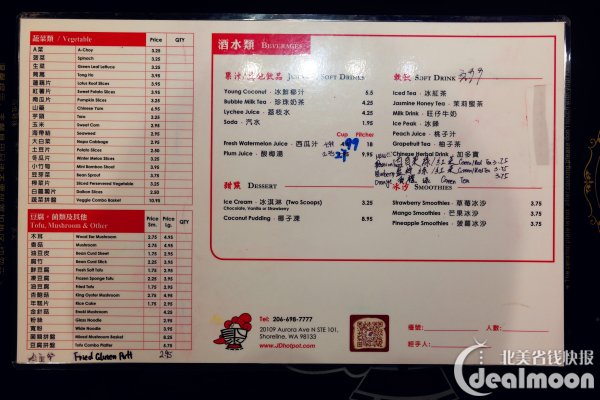 蔬菜類 / Vegetable Price QTY
A菜 A-Choy 3.25
菠菜 Spinach 3.25
生菜 Green Leaf Lettuce 3.25
茼蒿 Tong Ho 3.95
蓮藕片 Lotus Root Slices 3.95
紅薯片 Sweet Potato Slices 3.95
南瓜片 Pumpkin Slices 3.25
山藥 Chinese Yam 6.95
芋頭 Taro 3.25
玉米 Sweet Corn 2.95
海帶結 Seaweed 2.95
大白菜 Napa Cabbage 2.95
土豆片 Potato Slices 2.50
冬瓜片 Winter Melon Slices 3.25
小竹筍 Mini Bamboo Shoot 3.25
豆芽菜 Bean Sprout 3.75
榨菜片 Sliced Perservered Vegetable 3.25
白蘿蔔片 Daikon Slices 2.50
蔬菜拼盤 Veggie Combo Basket 10.95
豆腐、菌類及其他
Tofu, Mushroom & Other Price Sm. Price Lg. QTY
木耳 Wood Ear Mushroom 2.75 4.95
香菇 Mushroom 2.75 4.95
油豆皮 Bean Curd Sheet 2.75 4.95
腐竹 Bean Curd Stick 2.25 3.95
鮮豆腐 Fresh Soft Tofu 2.25 3.95
凍豆腐 Frozen Sponge Tofu 2.25 3.95
油豆腐 Fried Tofu 2.25 3.95
杏鮑菇 King Oyster Mushroom 2.75 4.95
年糕片 Rice Cake 1.75 2.95
金針菇 Enoki Mushroom 4.25
粉絲 Glass Noodle 2.95
寬粉 Wide Noodle 3.95
菌類拼盤 Mixed Mushroom Basket 8.25
豆腐拼盤 Tofu Combo Platter 6.75
Fried Gluten Puff 2.95
酒水類 Beverages
果汁/其他飲品 Juice / Soft Drinks
Young Coconut - 冰鎮椰汁 5.5
Bubble Milk Tea - 珍珠奶茶 4.25
Lychee Juice - 荔枝水 4.25
Soda - 汽水 1.95
Cup Pitcher
Fresh Watermelon Juice - 西瓜汁 4.99 18
Plum Juice - 酸梅湯 2.95 9.95
甜點 Dessert
Ice Cream - 冰淇淋 (Two Scoops) 3.25
Chocolate, Vanilla or Strawberry
Coconut Pudding - 椰子凍 8.95
軟飲 Soft Drink
Iced Tea - 冰紅茶
Jasmine Honey Tea - 茉莉蜜茶
Milk Drink - 旺仔牛奶
Ice Peak - 冰鋒
Peach Juice - 桃子汁
Grapefruit Tea - 柚子茶
Chinese Herbal Drink - 加多寶
Green/Red Tea 3.75
Green/Red Tea 3.75
Green Tea 3.75
冰沙 Smoothies
Strawberry Smoothies - 草莓冰沙 3.75
Mango Smoothies - 芒果冰沙 3.75
Pineapple Smoothies - 菠蘿冰沙 3.75
Tel: 206-698-7777
20109 Aurora Ave N STE 101,
Shoreline, WA 98133
www.JDhotpot.com
檯號: 人數:
經手人:
北美省钱快报
dealmoon.com